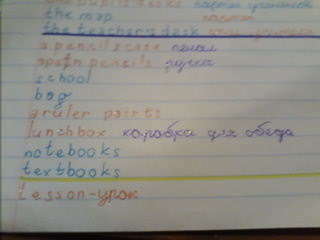 the map
the teacher's desk
a pencilscase пенал
pencils ручка
school
bag
a ruler paints
lunchbox коробка для обеда
notebooks
textbooks
Lesson-урок